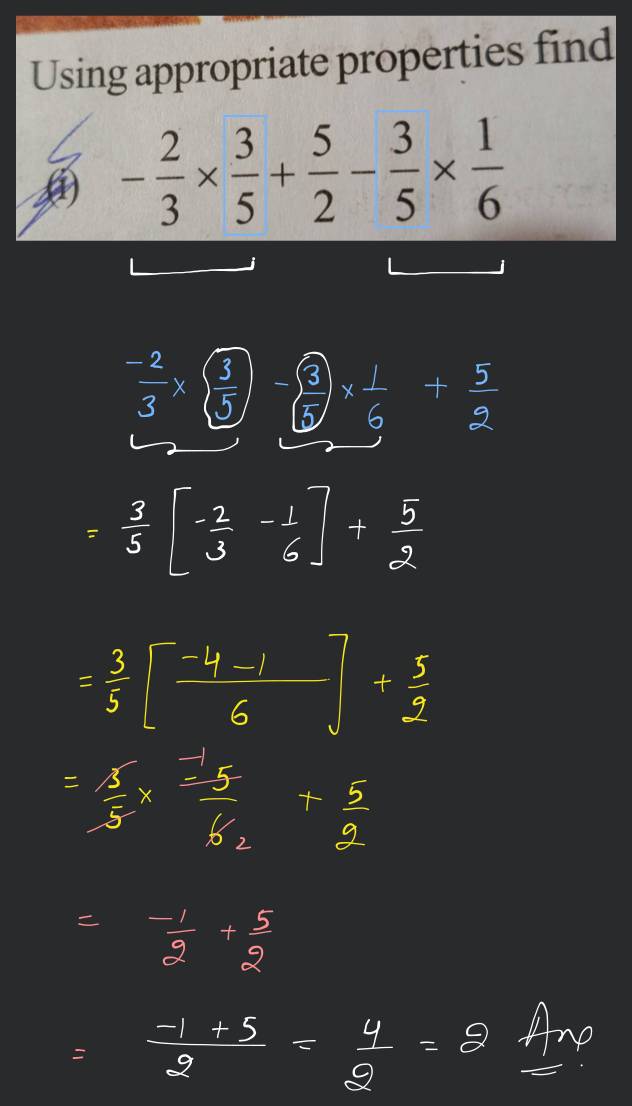 Using appropriate properties find
(i) - 2/3 × 3/5 + 5/2 - 3/5 × 1/6
-2/3 × 3/5 - 3/5 × 1/6 + 5/2
= 3/5 [ -2/3 - 1/6 ] + 5/2
= 3/5 [ -4-1/6 ] + 5/2
= 3/5 × -5/6 + 5/2
-1
2
= -1/2 + 5/2
= -1+5/2 = 4/2 = 2 Ans